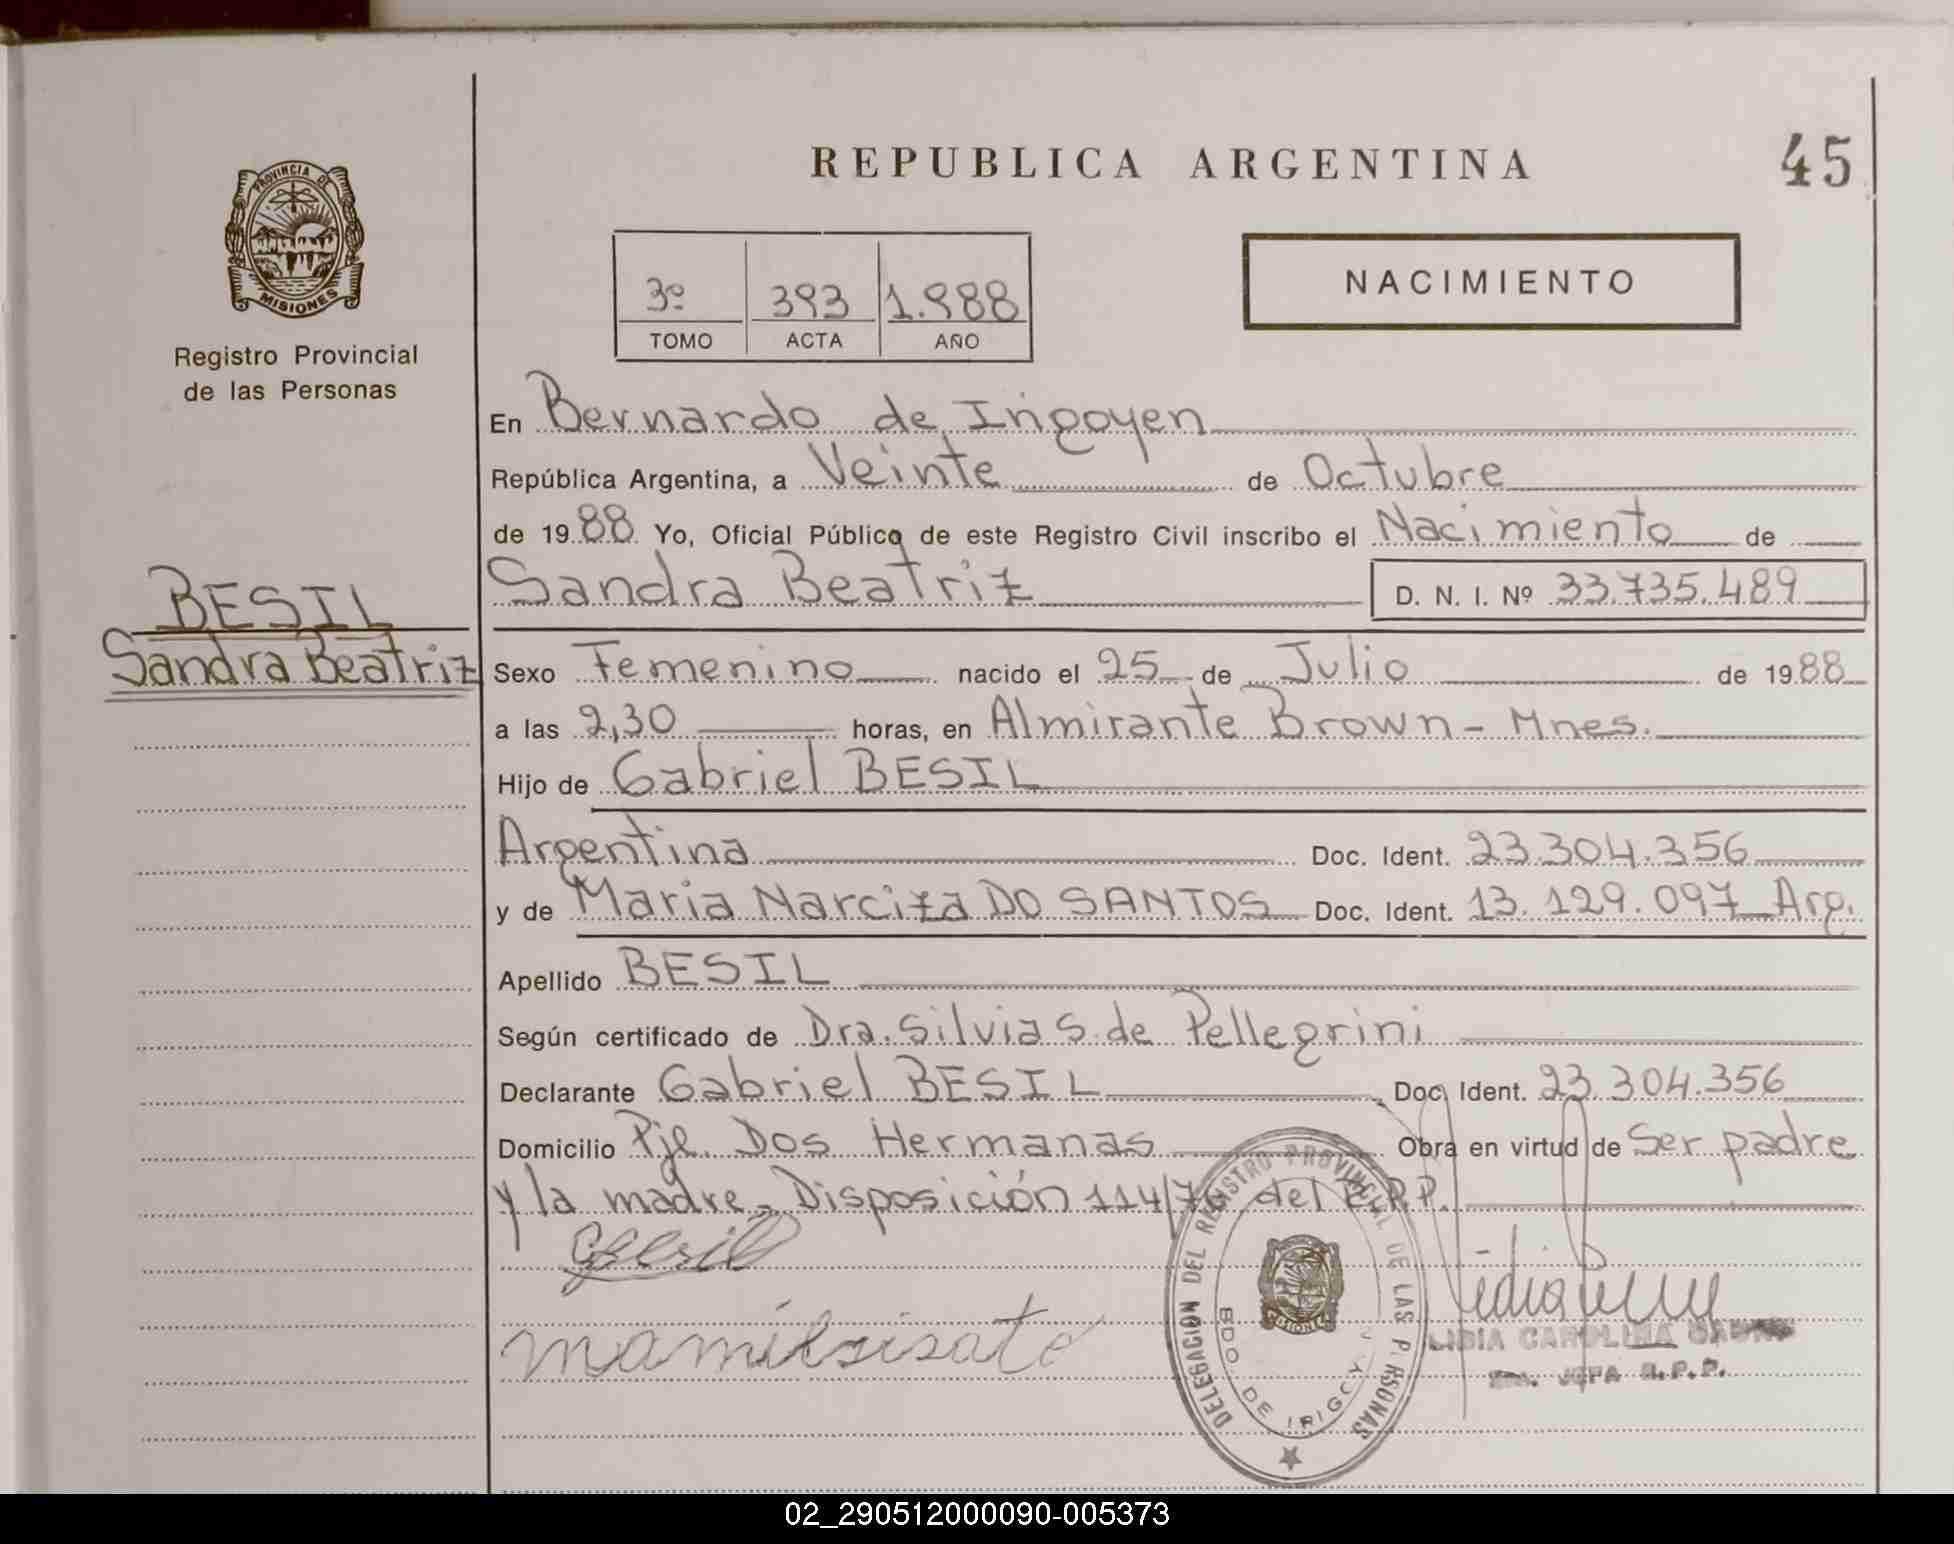 PROVINCIA DE
MISIONES
Registro Provincial
de las Personas
BESIL
Sandra Beatriz
REPUBLICA ARGENTINA
45
3º 393 1.988
TOMO ACTA AÑO
NACIMIENTO
En Bernardo de Irigoyen
República Argentina, a Veinte de Octubre
de 1988 Yo, Oficial Público de este Registro Civil inscribo el Nacimiento de
Sandra Beatriz D. N. I. Nº 33.735.489
Sexo Femenino nacido el 25 de Julio de 1988
a las 2,30 horas, en Almirante Brown - Mnes.
Hijo de Gabriel BESIL
Argentina Doc. Ident. 23.304.356
y de Maria Narciza DO SANTOS Doc. Ident. 13.129.097 Arg.
Apellido BESIL
Según certificado de Dra. Silvia S. de Pellegrini
Declarante Gabriel BESIL Doc. Ident. 23.304.356
Domicilio Pje. Dos Hermanas Obra en virtud de Ser padre
y la madre, Disposición 114/ del R.P.P.
DELEGACIÓN DEL REGISTRO PROVINCIAL DE LAS PERSONAS
BDO. DE IRIGOYEN
LIDIA CAROLINA
JEFA R.P.P.
02_290512000090-005373